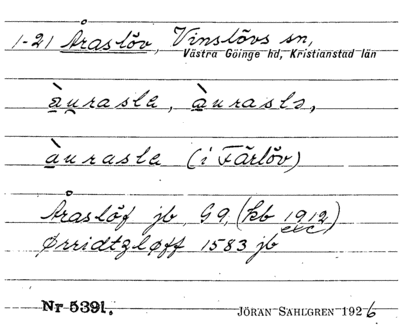 1-21 Åraslöv, Vinslövs sn,
Västra Göinge hd, Kristianstad län
àu̯rasla, àu̯rasls,
àurasla (i Färlöv)
Åraslöf jb, G9, (kb 1912)
Ørridtzløff 1583 jb
Nr 5391. JÖRAN SAHLGREN 1926